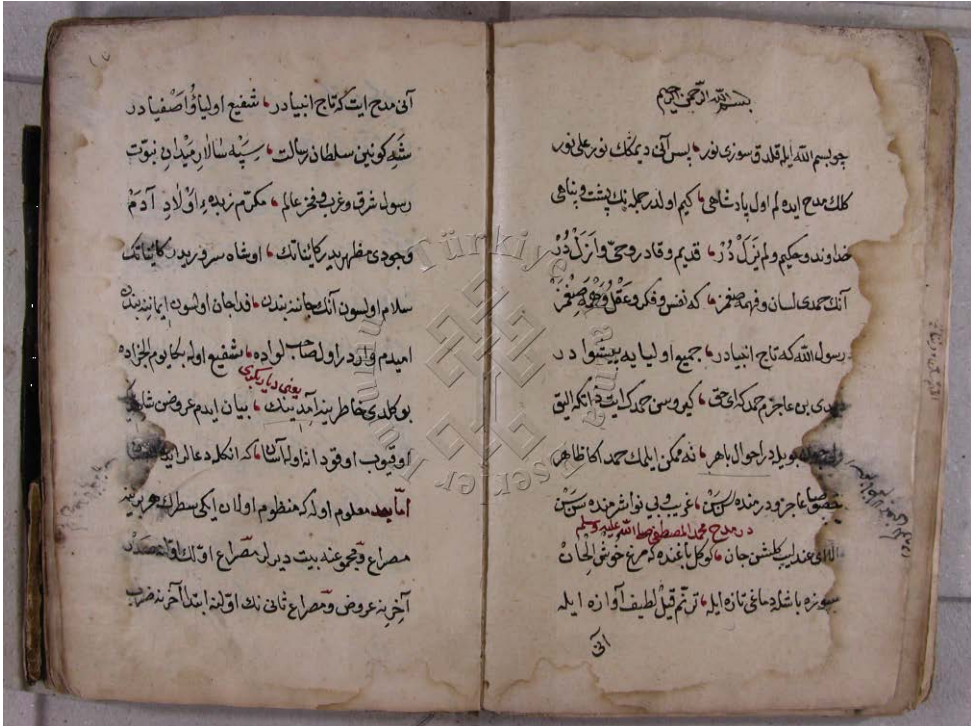 بسم الله الرحمن الرحيم
چو بسم الله ايله قلدق سوزى نور ؛ پس آنى ديمكك نور على نور
كلك مدح ايده لم اول پادشاهى ؛ كيم اولدر جمله نك پشت و پناهى
خداوند و حكيم و لم يَزَلْ دُرْ ؛ قديم و قادر و حىّ و ازَل دُرْ
آنك حمدى لسان و فهمه صغمز ؛ كه نفس و فكر و عَقْل و صغمز
رسول الله كه تاج انبيادر ؛ جميع اوليايه پيشوا در
بن عاجزم حمدكه اى حق ؛ كيم اليق
بويله در احوال باهر ؛ نه ممكن ايلمك حمد اكا ظاهر
خصوصا عاجز و درمنده سن ؛ غريب و بى نوا شرمنده سن
در مدح محمد المصطفى صلى الله عليه وسلم
الا اى عندليب كلشن جان ؛ كوكل باغنده كه مرغ خوش الحان
سوزه باشلا دماغى تازه ايله ؛ ترنّم قيل لطيف آوازه ايله
آنى
آنى مدح ايت كه تاج انبيادر ؛ شفيع اوليا و اَصْفيادر
شَهِ كونين سلطان رسالت ؛ سِپَه سالارِ ميدانِ نبوّت
رسول شرق و غرب و فخر عالم ؛ مكرّم زبده ء اَوْلادِ آدَمْ
وجودى مظهريدر كايناتك ؛ او شاه سروريدر كايناتك
سلام اولسون آنك جاننه بندن ؛ فدا جان اولسون ايماننه بندن
اميدم واردر اول صاحب لواده ؛ شفيع اوله بكا يوم الجزاده
يعنى ديار بكرى
بو كلدى خاطر بند آمدينك ؛ بيان ايدم عروضن
اوقيوب اوقودانه اوله آسان ؛ كه انكله دعالر
اما بعد معلوم اوله كه منظوم اولان ايكى سطرك هر برينه
مصراع و مجموعنه بيت ديرلر مصراع اوّلك اوّلنه صدر
آخرينه عروض و مصراع ثانى نك اوّلنه ابتدا آخرينه ضرب